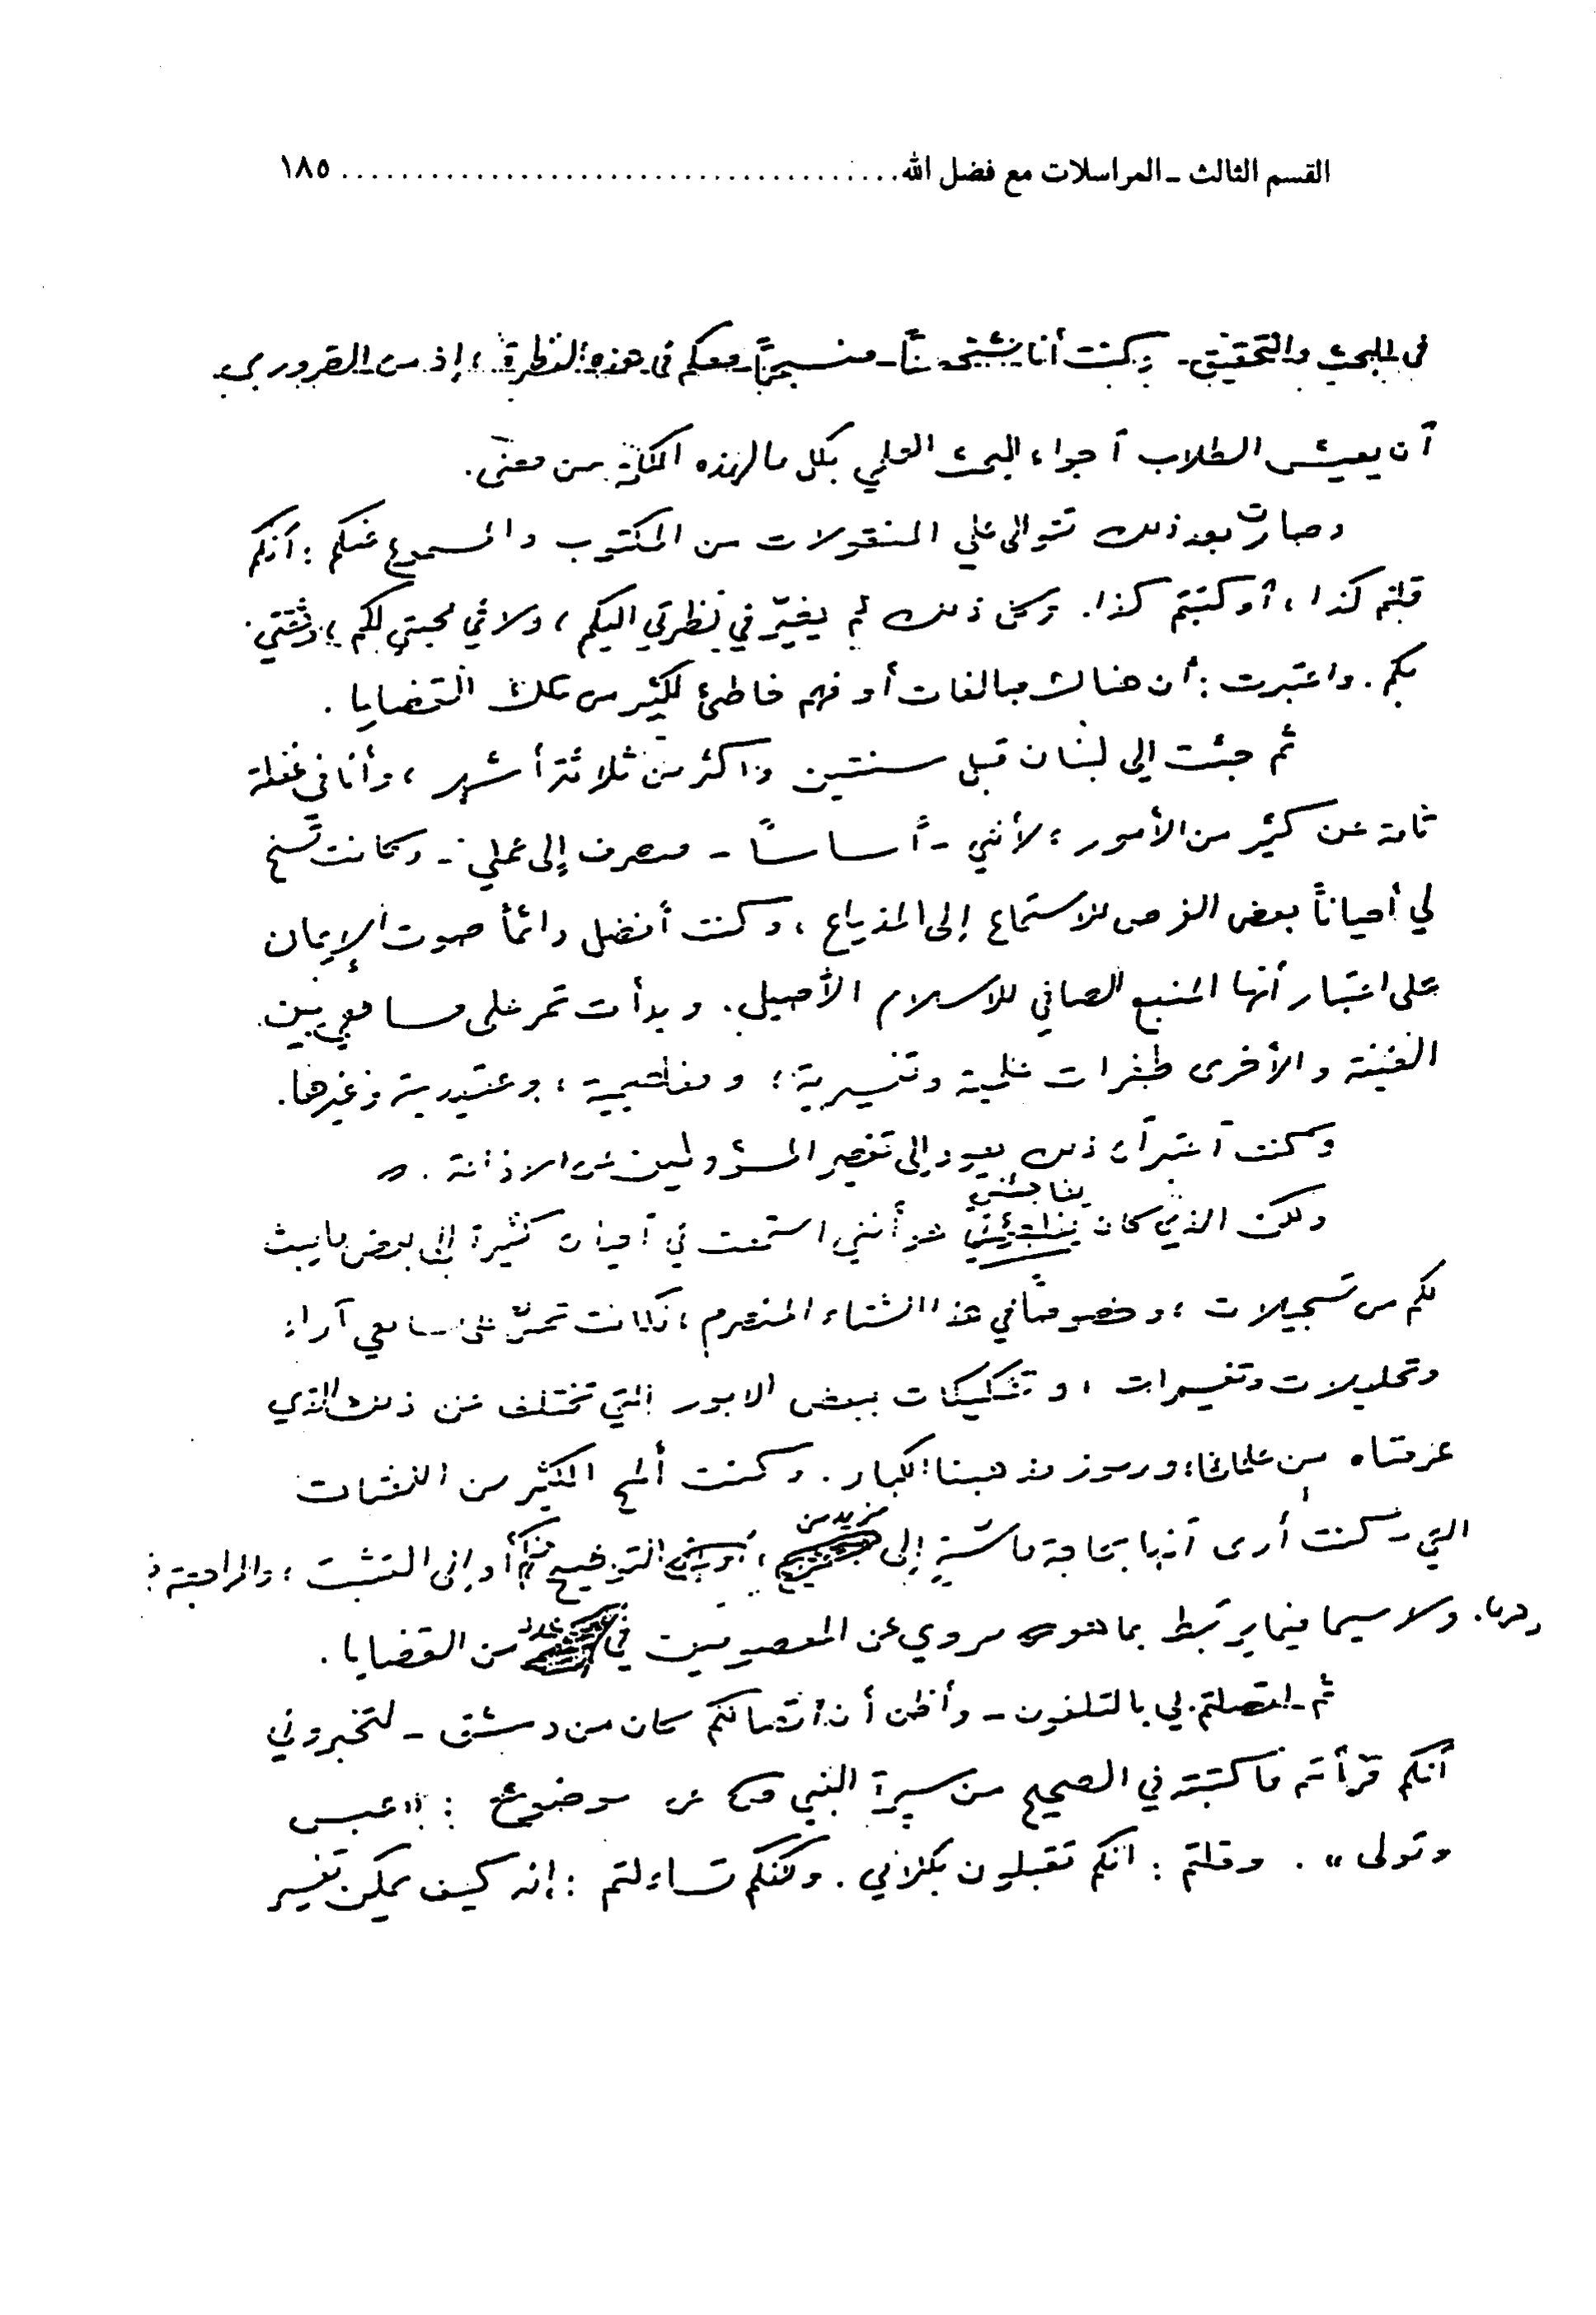 القسم الثالث ـ المراسلات مع فضل الله ........................................ ١٨٥
في البحث والتحقيق - وكنت أنا شخصياً - منسجماً معكم في هذه النظرة ؛ إذ من الضروري
أن يعيش الطلاب أجواء البحث العلمي بكل ما لهذه الكلمة من معنى .
وصارت بعد ذلك تتوالى علي المنقولات من المكتوب والمسموع عنكم : أنكم
قلتم كذا ، أو كتبتم كذا . وكل ذلك لم يغيّر في نظرتي اليكم ، ولا في محبتي لكم ، وثقتي
بكم . واعتبرت : أن هناك مبالغات أو فهم خاطئ لكثير من تلك القضايا .
ثم جئت الى لبنان قبل سنتين واكثر من ثلاثة أشهر ، وأنا في غفلة
تامة عن كثير من الأمور ؛ لأنني - أساساً - منصرف إلى عملي - وكانت تسنح
لي أحياناً بعض الفرص للاستماع إلى المذياع ، وكنت أفضل دائماً صوت الإيمان
على اعتبار أنها المنبع الصافي للاسلام الأصيل . وبدأت تمر على مسامعي بين
الفينة والأخرى طفرات علمية وتفسيرية ؛ ومفاهيمية ، وعقيدية وغيرها .
وكنت أعتبر أن ذلك يعود إلى تقصير المسؤولين عن الاذاعة .
يفاجئني
ولكن الذي كان هو أنني استمعت في أحيان كثيرة إلى بعض ما يبث
لكم من تسجيلات ؛ وخصوصاً في هذا الشتاء المنصرم ، فكانت تمرّ على مسامعي آراء
وتحليلات وتفسيرات ، وتشكيكات ببعض الامور التي تختلف عن ذلك الذي
عرفناه من علمائنا ورموز مذهبنا الكبار . وكنت ألمح الكثير من
مزيد من
التي كنت أرى أنها بحاجة ماسّة إلى التوضيح منكم أو إلى التثبت ؛ والمراجعة ؛
ولا سيما فيما يرتبط بما هو مروي عن المعصومين في عدد من القضايا .
ثم اتصلتم بي بالتلفون - وأظن أن اتصالكم كان من دمشق - لتخبروني
أنكم قرأتم ما كتبته في الصحيح من سيرة النبي ص عن موضوع : " عبس
وتولى " . وقلتم : انكم تقبلون بكلامي . ولكنكم تساءلتم : إنه كيف يمكن تفسير